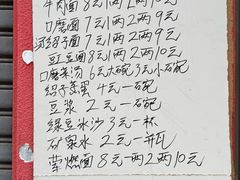 牛肉面 8元1两2两10元
口磨面 7元1两2两9元
汤绍子面 7元1两2两9元
豆豆面 8元1两2两10元
口磨菜汤 6元大碗3元小石碗
绍子蒸蛋 4元一石碗
豆浆 2元一石碗
绿豆冰沙 3元一杯
矿泉水 2元一并瓦
燃面 8元一两2两10元